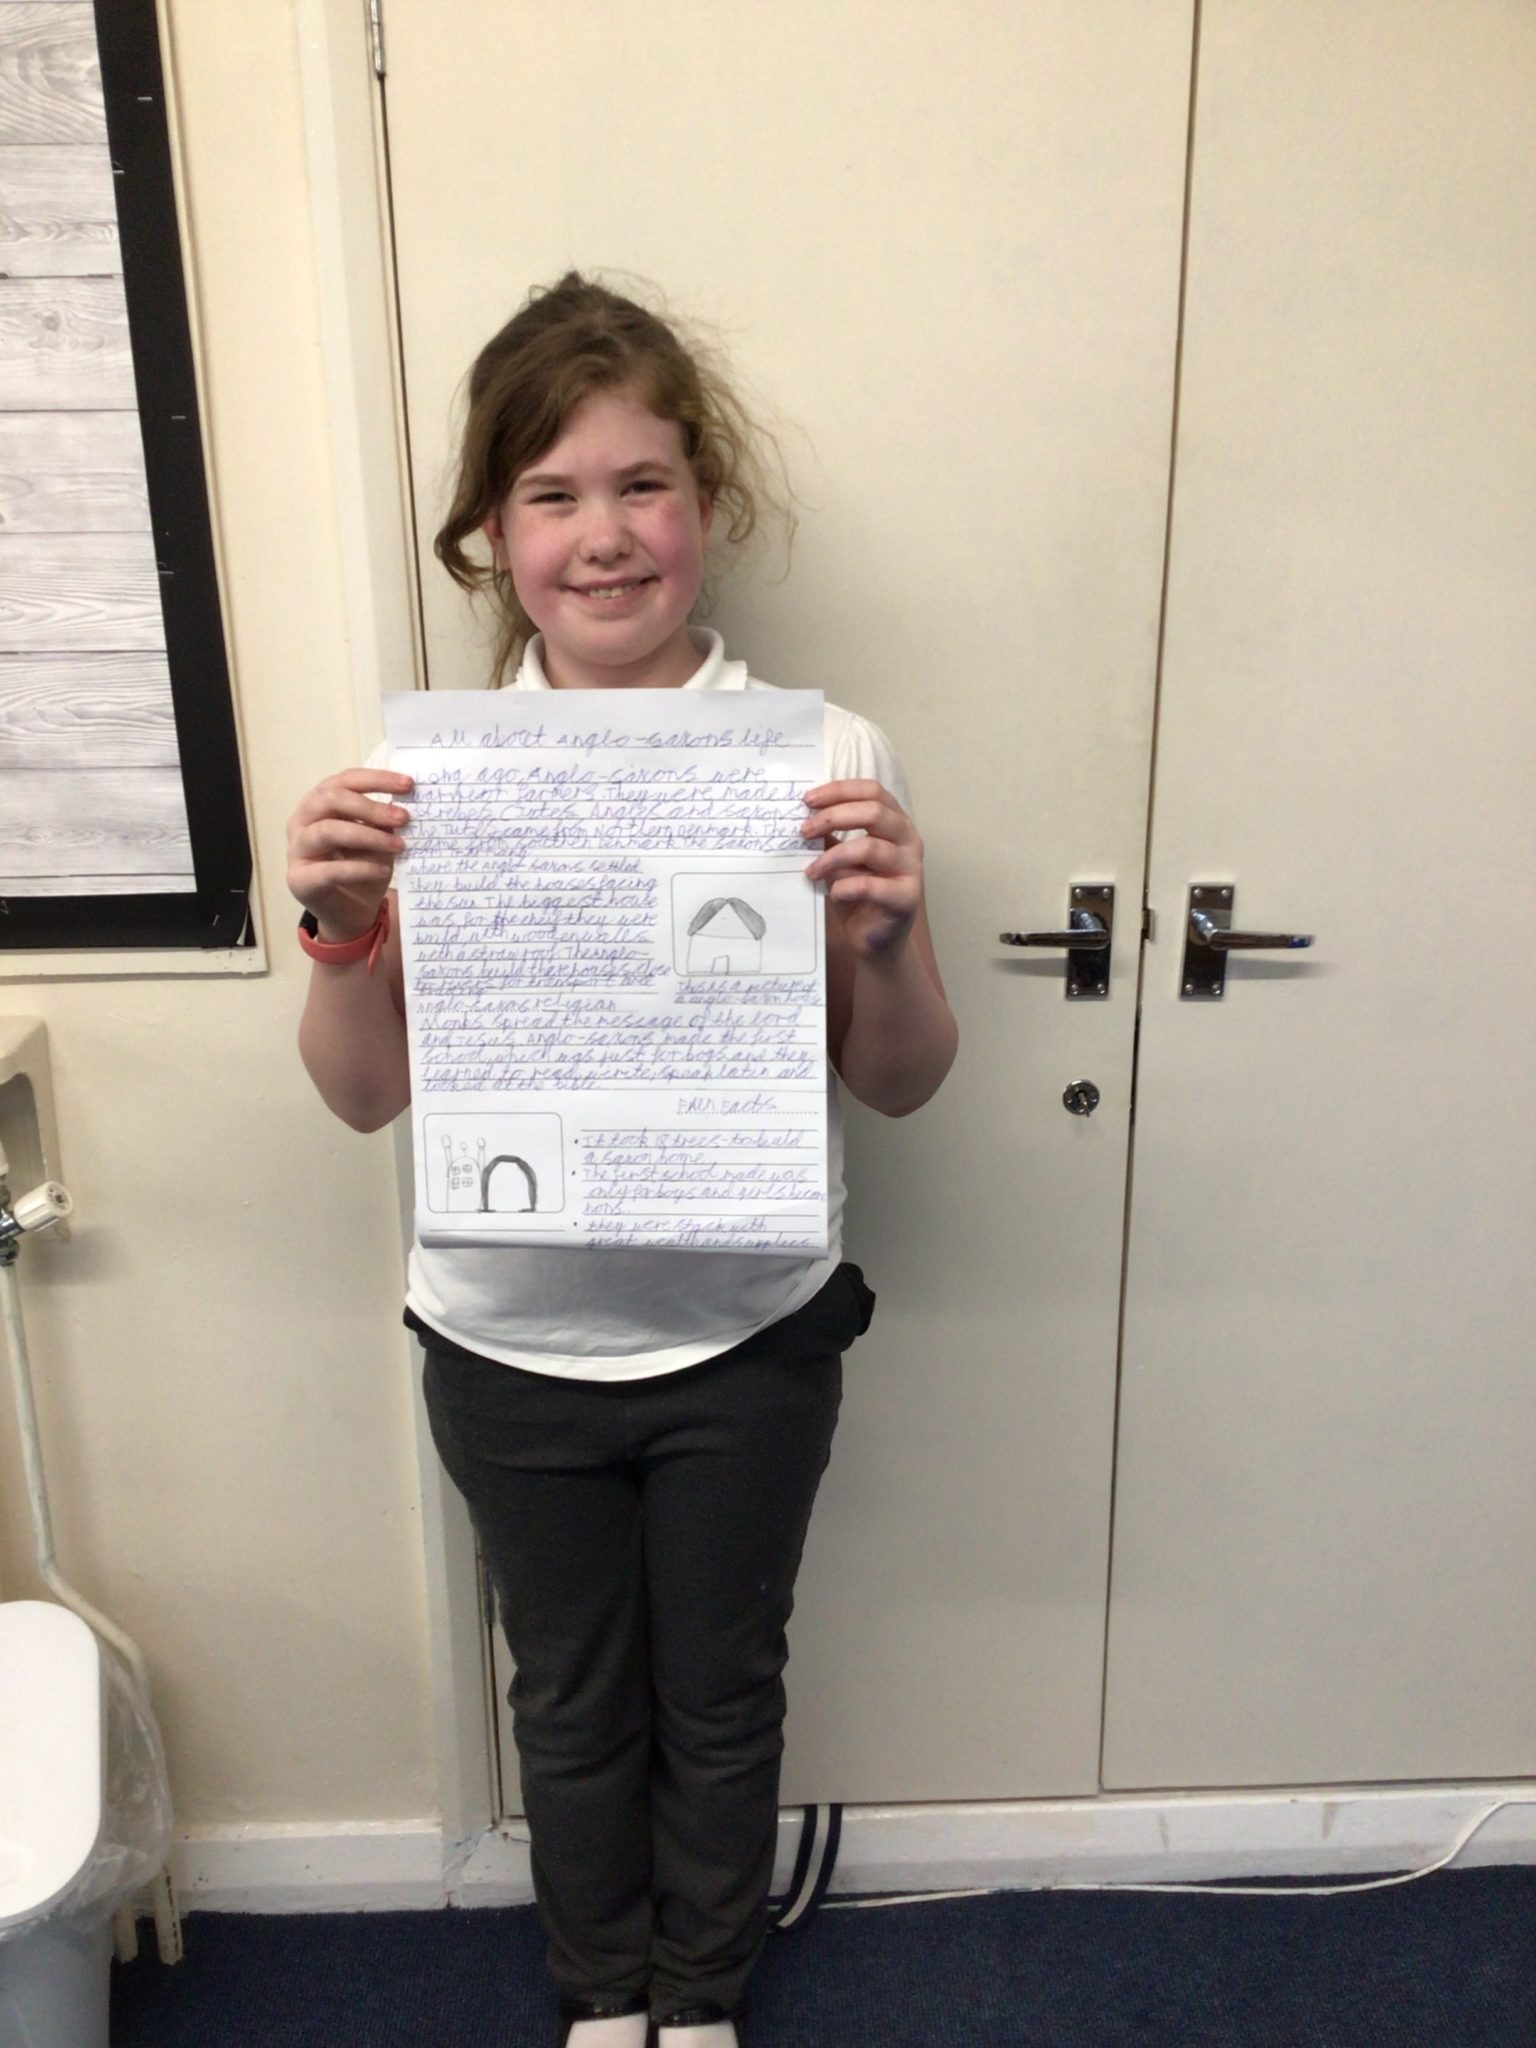 All about Anglo-saxons life
Long ago, Anglo-saxons were
farmers. They were made by
Angles and saxons
The Jutes came from Northern Denmark. The
came from southern Denmark. The saxons came
from Germany
where the Anglo-saxons settled
They build the houses facing
the sun. The biggest house
was for the chief they were
build with wooden walls
with a straw roof. The Anglo-
saxons build there houses close
to rivers for transport and
This is a picture of
a anglo-saxon house
Anglo-saxons religian
Monks spread the message of the lord
and Jesus. Anglo-saxons made the first
school, which was just for boys and they
learned to read, wirite, speak latin and
looked at the bible.
Fun Facts
• It took 18 trees to build
a saxon home.
• The first school made was
only for boys and girls became
nons.
• they were stuck with
great wealth and supplies